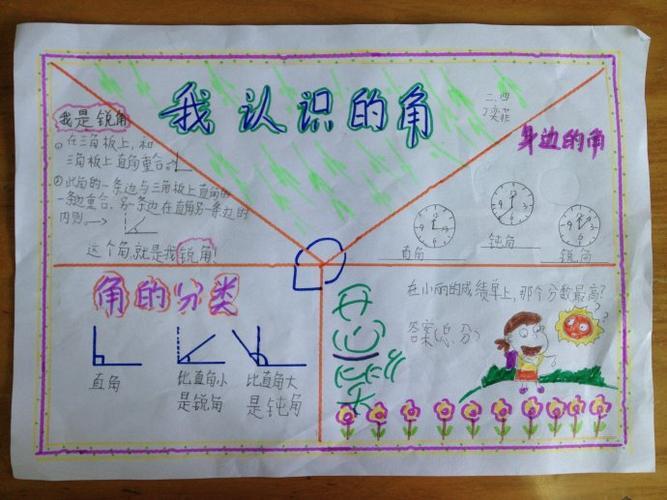 我认识的角
二、四
我是锐角
①在三角板上，和
三角板上直角重合。
②此角的一条边与三角板上直角的
一条边重合，另一条边在直角另一条边的
内则。
这个角，就是我锐角！
身边的角
直角
钝角
锐角
角的分类
直角
比直角小
是锐角
比直角大
是钝角
开心
在小丽的成绩单上，那个分数最高？
答案（总分）